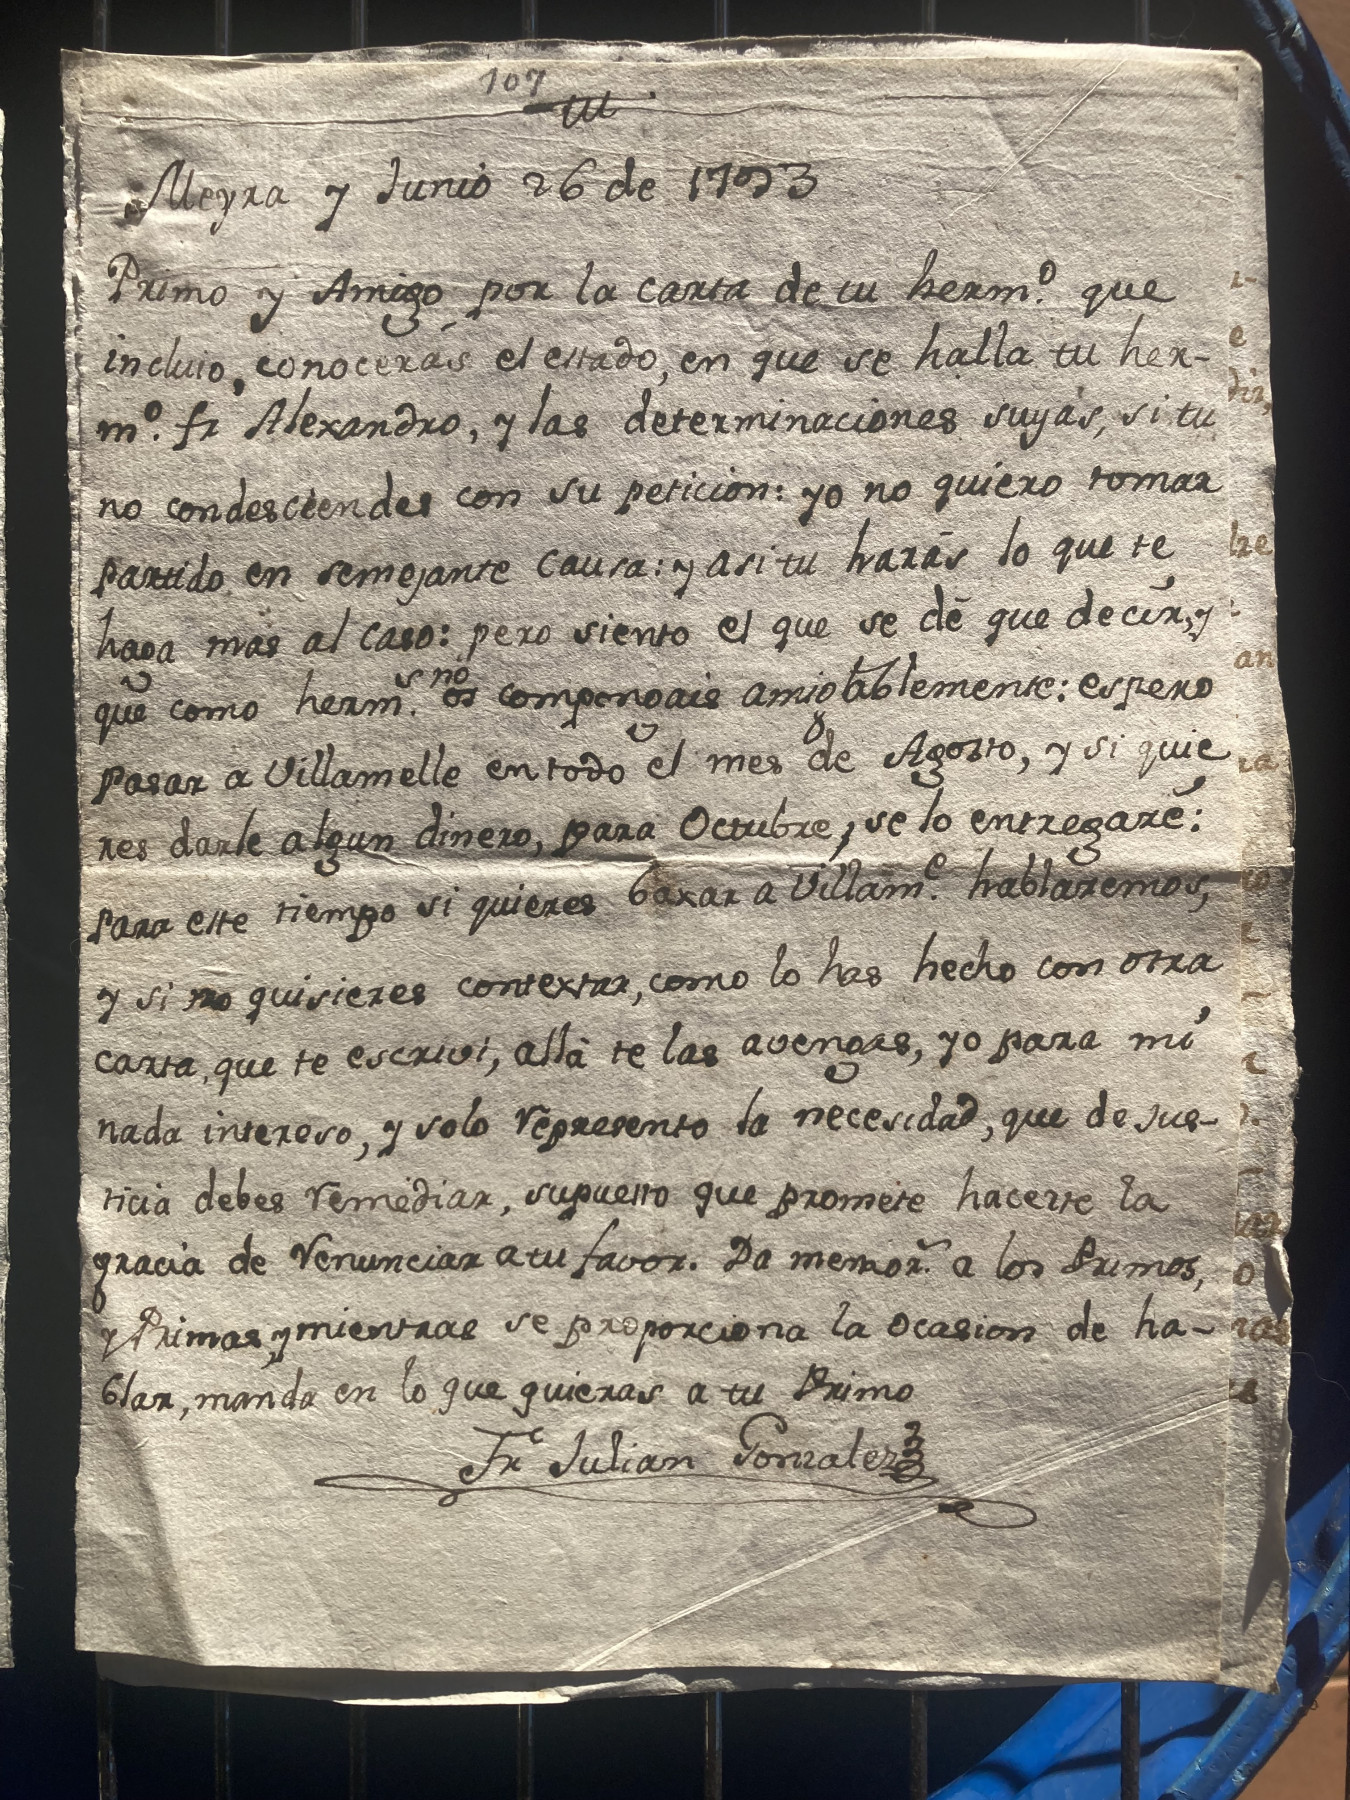 107
Meyra y Junio 26 de 1793
Primo y Amigo por la carta de tu herm.º que
incluio, conocerás el estado, en que se halla tu her-
mº. fr Alexandro, y las determinaciones suyas, si tu
no condesciendes con su peticion: yo no quiero tomar
partido en semejante causa: y asi tu harás lo que te
haga mas al caso: pero siento el que se dé que decir, y
que como herm.s no os compongais amigablemente: espero
pasar a Villamelle en todo el mes de Agosto, y si quie
res darle algun dinero, para Octubre, se lo entregaré:
para este tiempo si quieres baxar a Villam.e hablaremos,
y si no quisieres contextar, como lo has hecho con otra
carta, que te escrivi, allá te las avengas, yo para mi
nada intereso, y solo represento la necesidad, que de jus-
ticia debes remediar, supuesto que promete hacerte la
gracia de renunciar a tu favor. Da memor.s a los Primos,
y Primas, y mientras se proporciona la ocasion de ha-
blar, manda en lo que quieras a tu Primo
Fr Julian Gonzalez